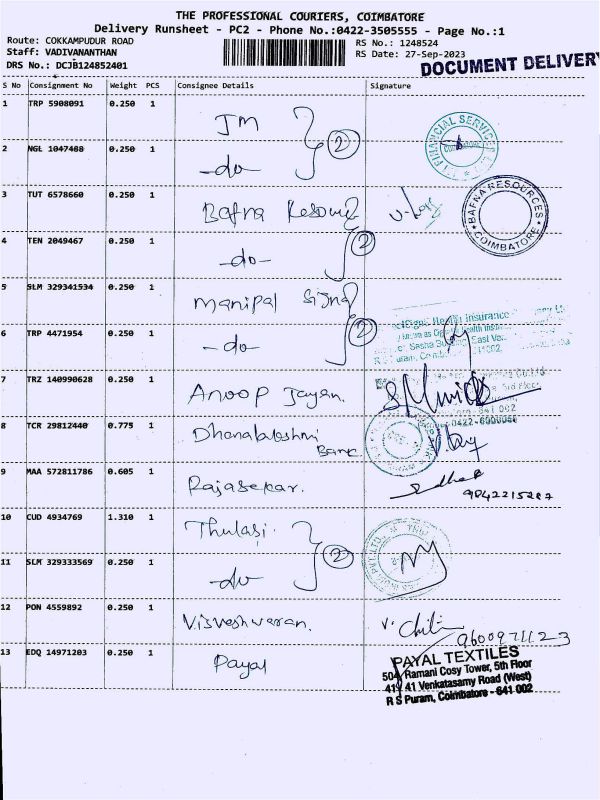 THE PROFESSIONAL COURIERS, COIMBATORE
Delivery Runsheet - PC2 - Phone No.:0422-3505555 - Page No.:1
Route: COKKAMPUDUR ROAD
RS No.: 1248524
Staff: VADIVANANTHAN
RS Date: 27-Sep-2023
DRS No.: DCJB124852401
DOCUMENT DELIVERY
S No Consignment No Weight PCS Consignee Details Signature
1 TRP 5908091 0.250 1 JM
2
2 NGL 1047488 0.250 1 -do-
FINANCIAL SERVICES
3 TUT 6578660 0.250 1 Bafna
BAFNA RESOURCES
COIMBATORE
4 TEN 2049467 0.250 1 -do-
2
5 SLM 329341534 0.250 1 Manipal Signa
Health Insurance
6 TRP 4471954 0.250 1 -do-
2
7 TRZ 140990628 0.250 1 Anoop Jayan.
8 TCR 29812440 0.775 1 Dhanalakshmi
Bank
9 MAA 572811786 0.605 1 Rajasekar.
9842215227
10 CUD 4934769 1.310 1 Thulasi
2
11 SLM 329333569 0.250 1 -do-
12 PON 4559892 0.250 1 Visveshwaran.
9600971123
13 EDQ 14971203 0.250 1 Payal
PAYAL TEXTILES
504, Ramani Cosy Tower, 5th Floor
41 Venkatasamy Road (West)
R S Puram, Coimbatore - 641 002